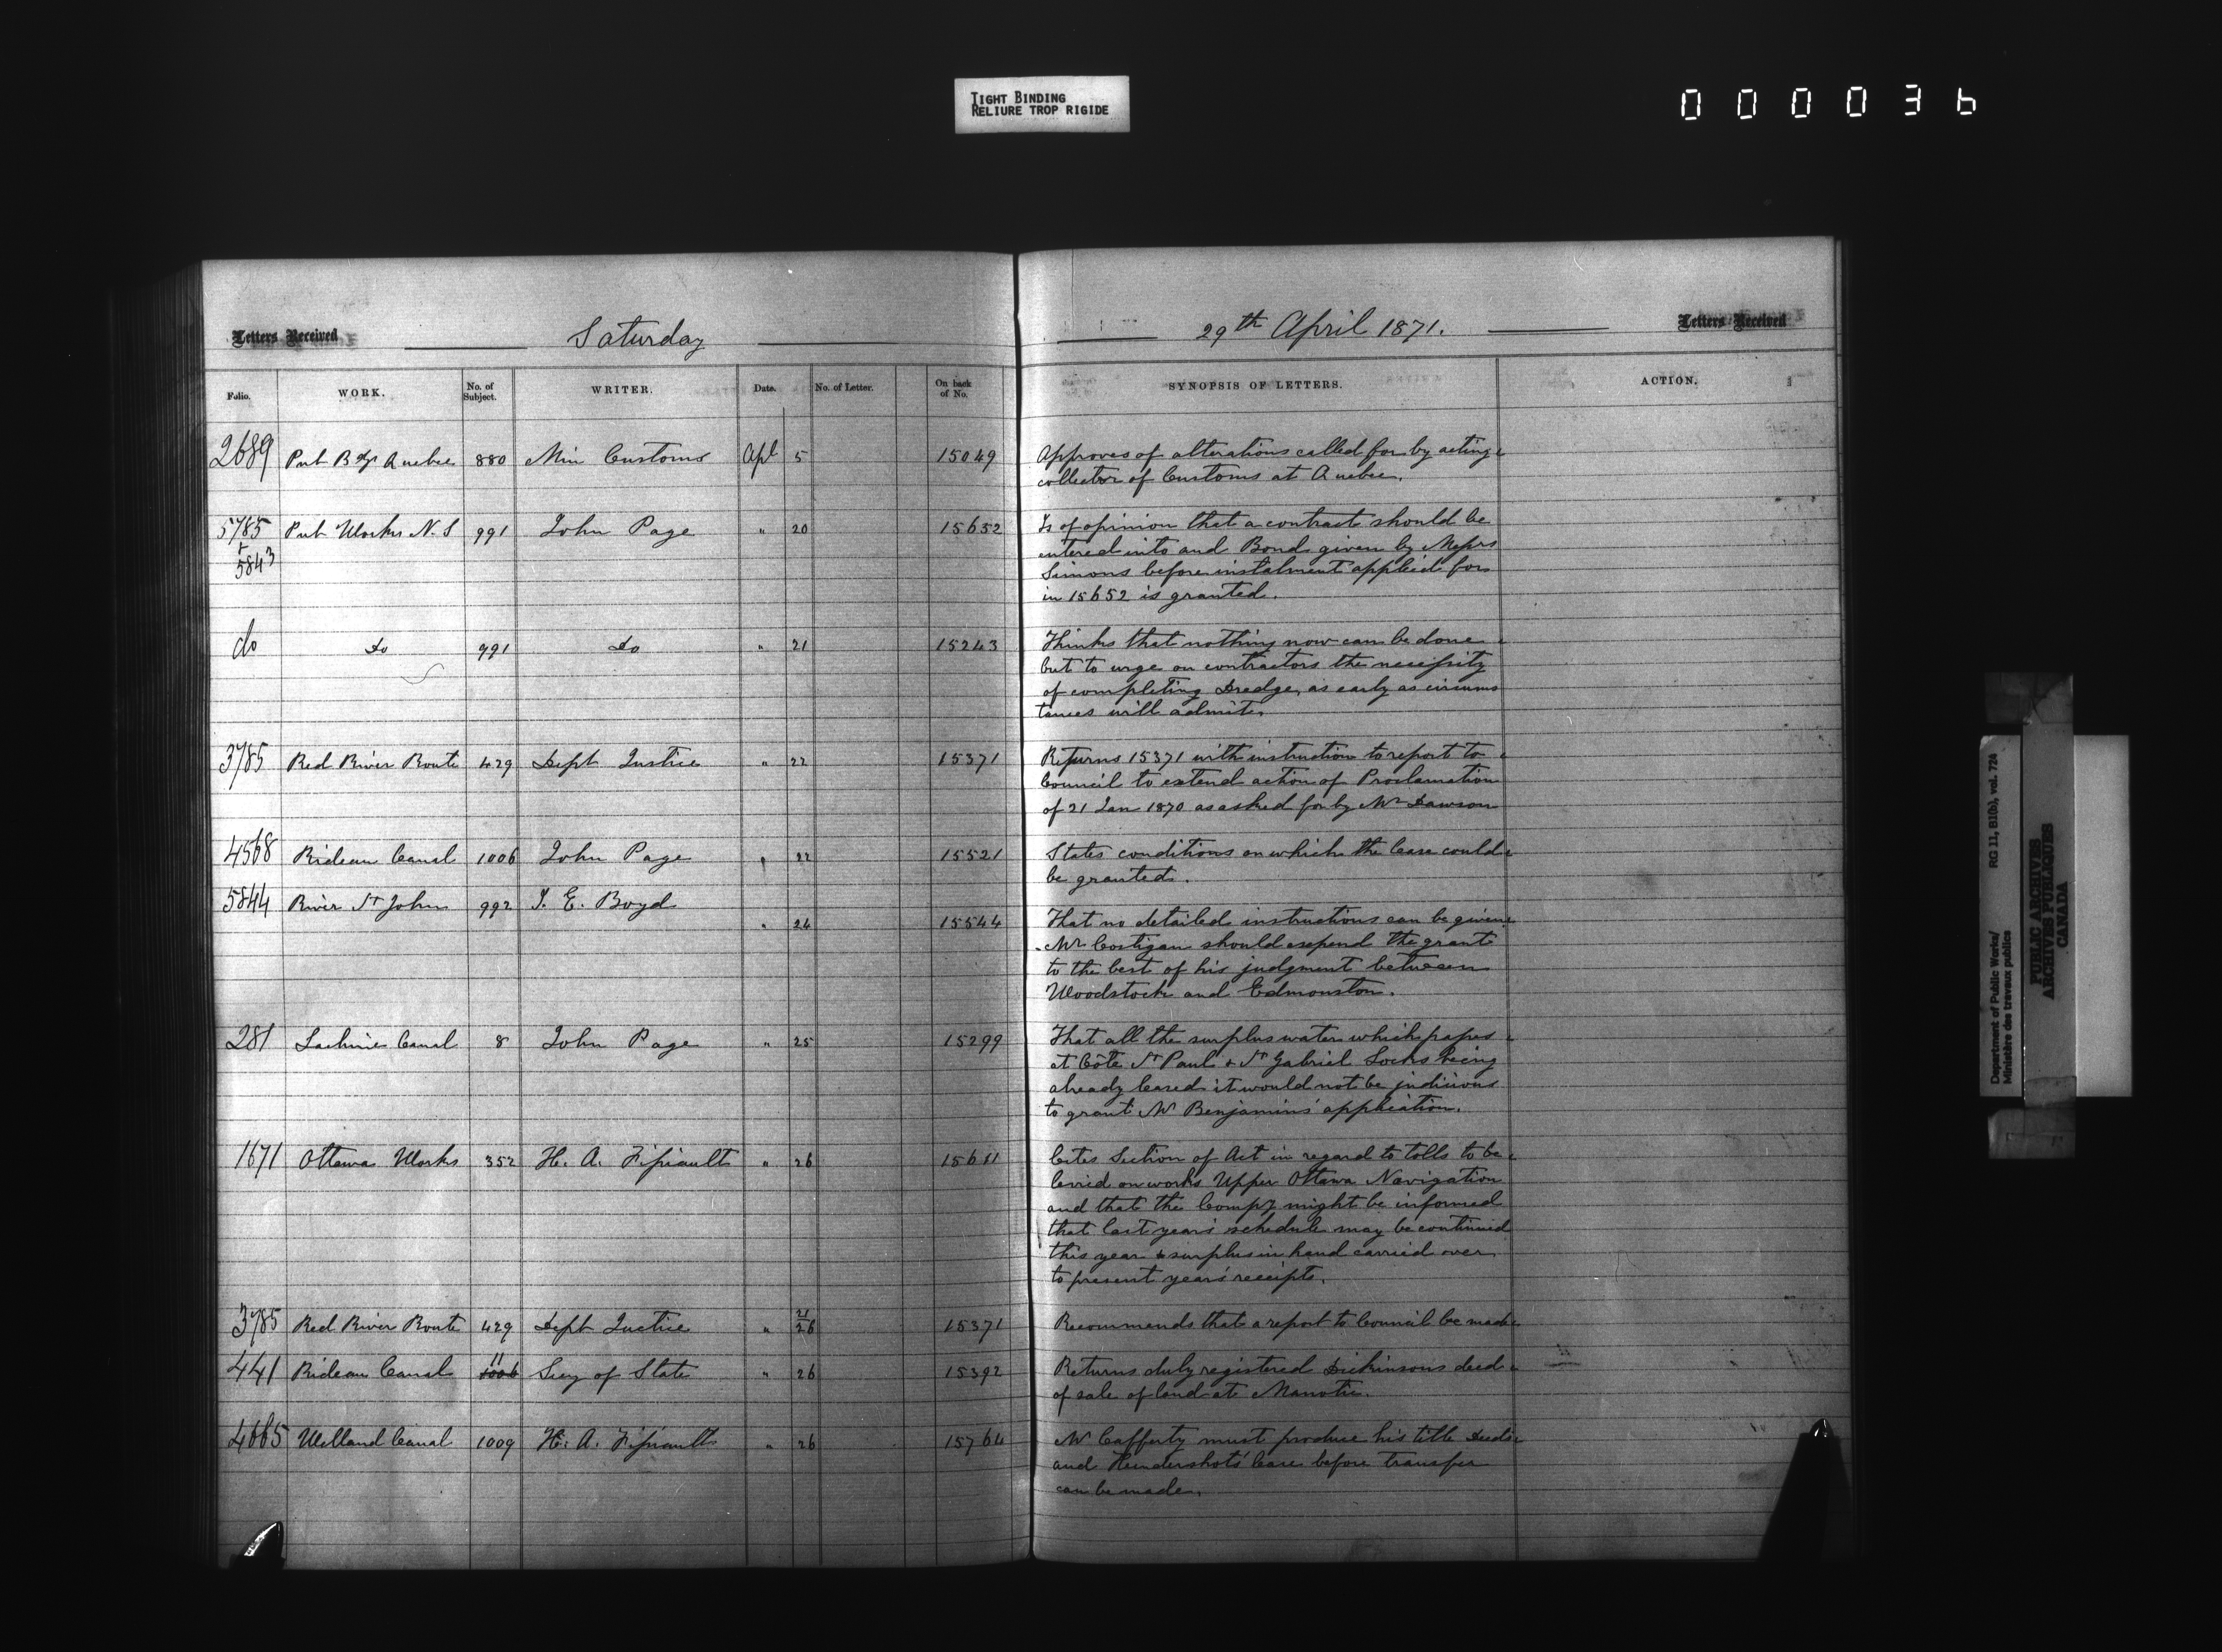 TIGHT BINDING
RELIURE TROP RIGIDE
000036
Letters Received
Saturday
29th April 1871.
Letters Received
Folio. WORK. No. of Subject. WRITER. Date. No. of Letter. On back of No. SYNOPSIS OF LETTERS. ACTION.
2689 Pub Bdgs Quebec 880 Min Customs Apl 5 15049 Approves of alterations called for by acting
collector of Customs at Quebec.
5785 Pub Works N.S 991 John Page " 20 15652 Is of opinion that a contract should be
+ entered into and Bond given by Messrs
5843 Simons before instalment applied for
in 15652 is granted.
do Do 991 Do " 21 15243 Thinks that nothing now can be done
but to urge on contractors the necessity
of completing Dredge, as early as circums
tances will admit.
3785 Red River Route 429 Dept Justice " 22 15371 Returns 15371 with instruction to report to
Council to extend action of Proclamation
of 21 Jan 1870 as asked for by Mr Dawson
4568 Rideau Canal 1006 John Page " 22 15521 States conditions on which the lease could
be granted.
5844 River St John 992 J. E. Boyd
" 24 15544 That no detailed instructions can be given
Mr Costigan should expend the grant
to the best of his judgment between
Woodstock and Edmonston.
281 Lachine Canal 8 John Page " 25 15299 That all the surplus water which passes
at Côte St Paul & St Gabriel Locks being
already leased it would not be judicious
to grant Mr Benjamins' application.
1671 Ottawa Works 352 H. A. Fissiault " 26 15611 Cites Section of Act in regard to tolls to be
levied on works Upper Ottawa Navigation
and that the Compy might be informed
that last years' schedule may be continued
this year & surplus in hand carried over
to present years' receipts.
3785 Red River Route 429 Dept Justice " 21/26 15371 Recommends that a report to Council be made
441 Rideau Canal 11 1006 Secy of State " 26 15392 Returns duly registered Dickinsons deed
of sale of land at Manotic.
4665 Welland Canal 1009 H. A. Fissiault " 26 15764 Mr Cafferty must produce his title Deeds
and Hendershots' lease before transfer
can be made.
Department of Public Works/
Ministère des travaux publics
RG 11, B1(b), vol. 724
PUBLIC ARCHIVES
ARCHIVES PUBLIQUES
CANADA